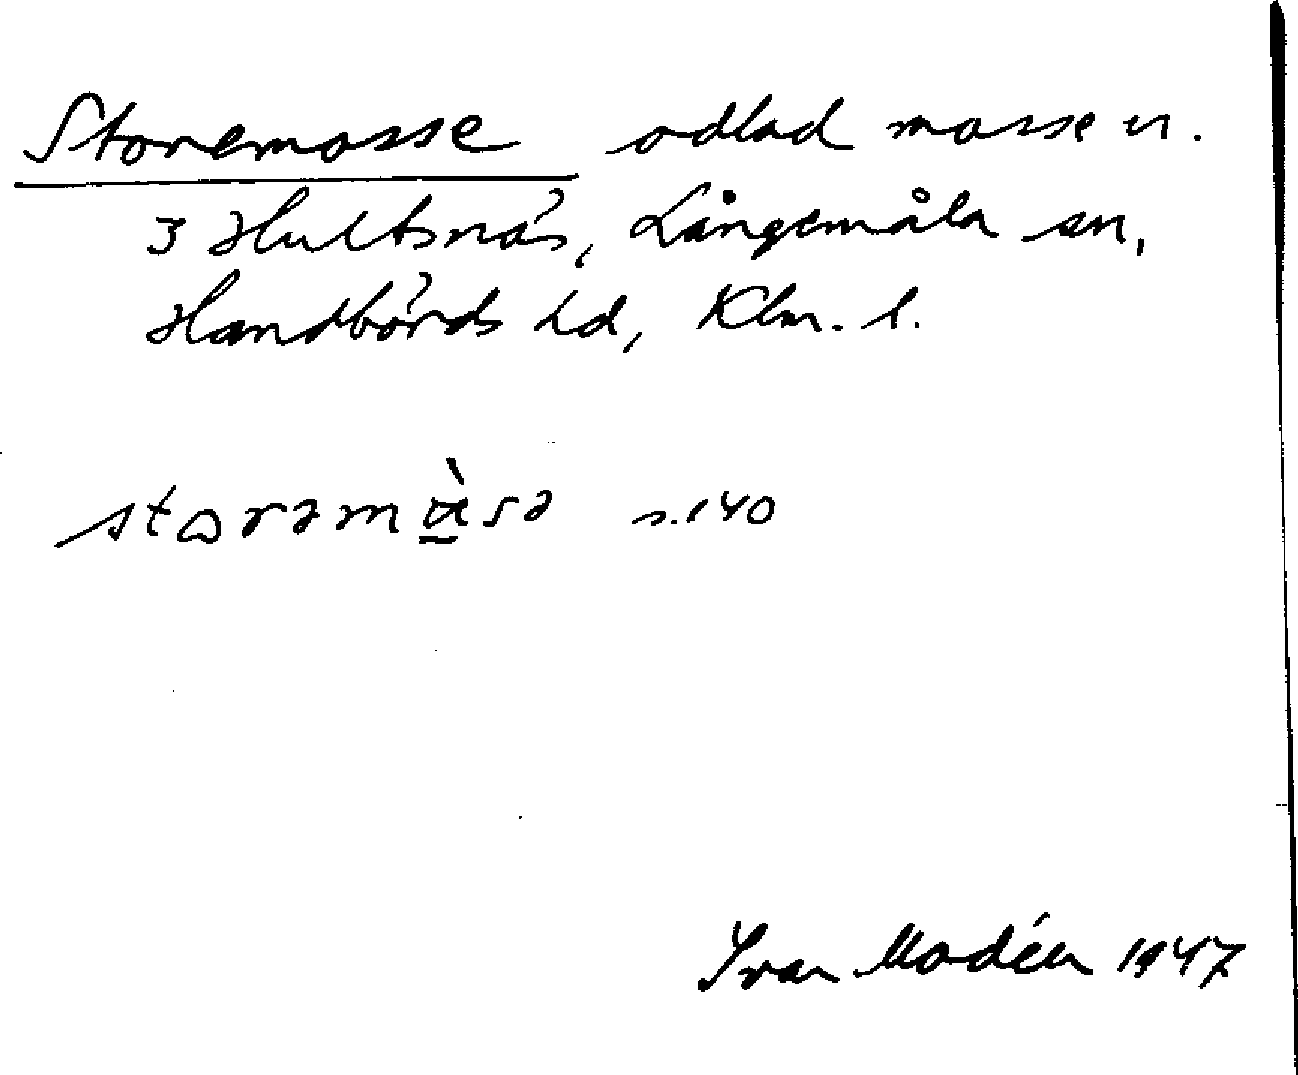 Storemosse odlad mosse u.
3 Hultsnäs, Långemåla sn,
Handbörds hd, Klm. l.
storəmɷ̀sə s. 140
Ivar Modéer 1947